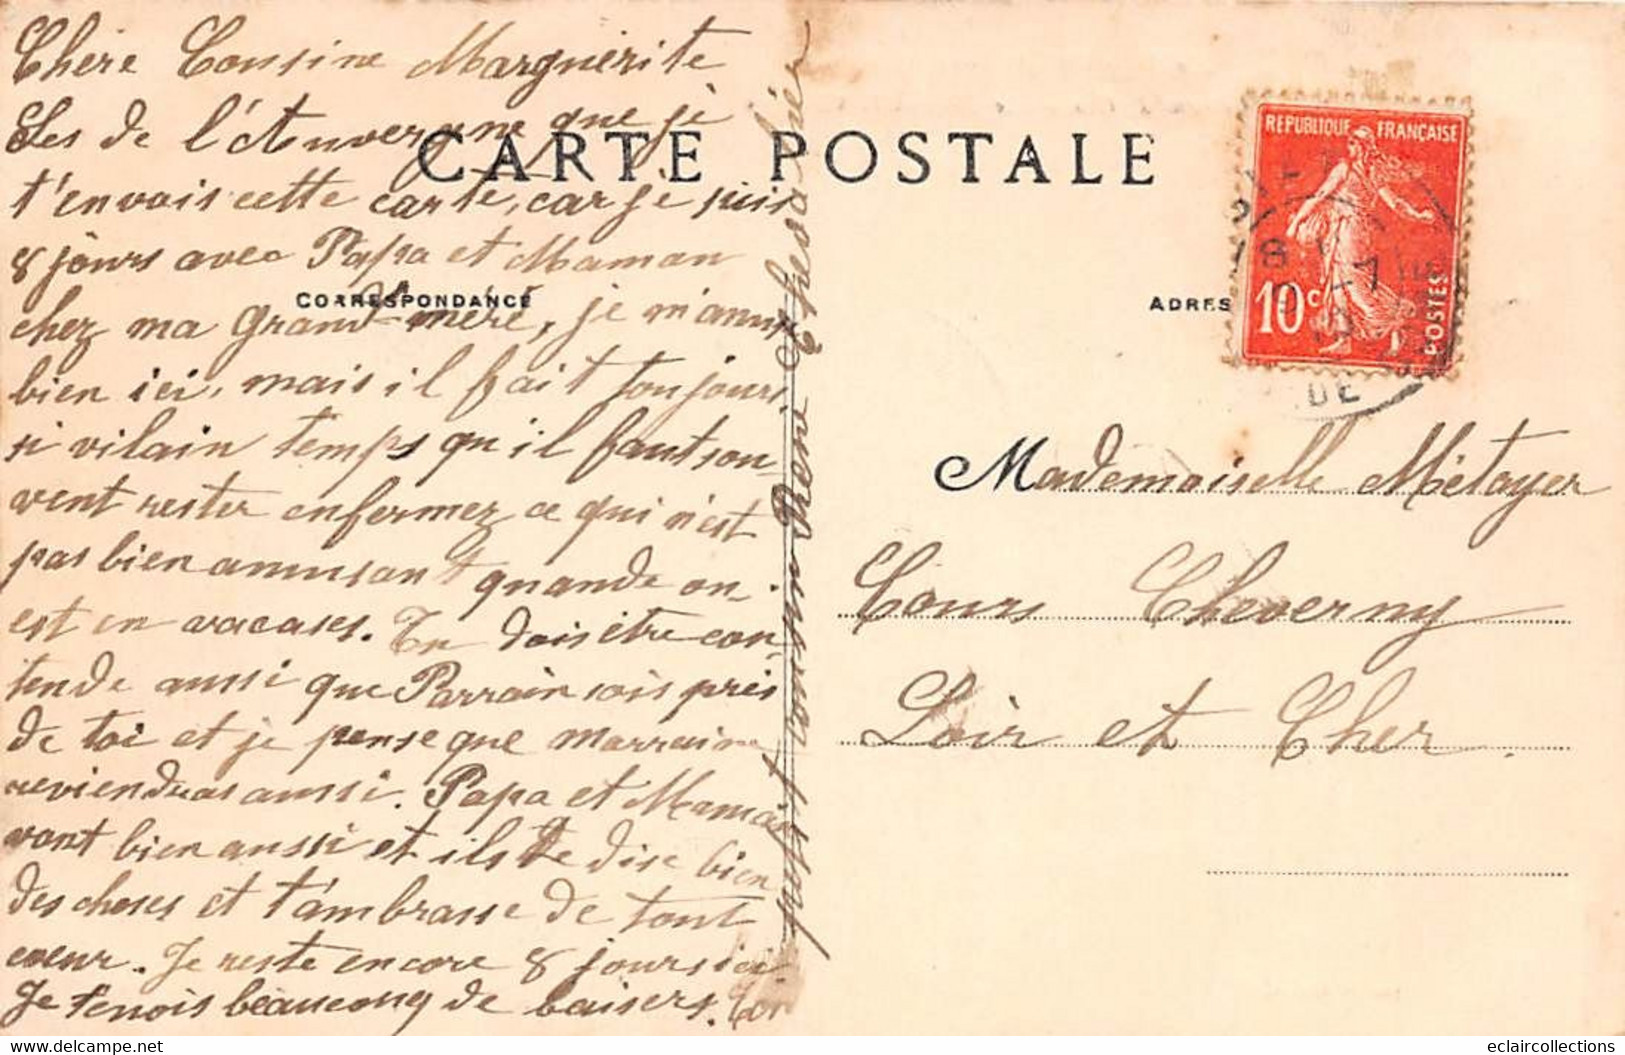 Chère Cousine Marguérite
Ses de l'Auvergne que je
t'envois cette carte, car je suis
8 jours avec Papa et Maman
chez ma Grand-mère, je m'amuse
bien ici, mais il fait toujours
si vilain temps qu'il faut sou-
vent rester enfermez ce qui n'est
pas bien amusant quande on
est en vacases. Tu dois être con-
tende aussi que Parrain sois près
de toi et je pense que marraine
reviendras aussi. Papa et Maman
vont bien aussi et ils te dise bien
des choses et t'ambrasse de tout
coeur. Je reste encore 8 jours ici
Je t'envois beaucoup de baisers. Ton
petit cousin René
CARTE POSTALE
CORRESPONDANCE
ADRES
REPUBLIQUE FRANÇAISE
10c
POSTES
DE
Mademoiselle Métayer
Cours Cheverny
Loir et Cher.
www.delcampe.net
eclaircollections